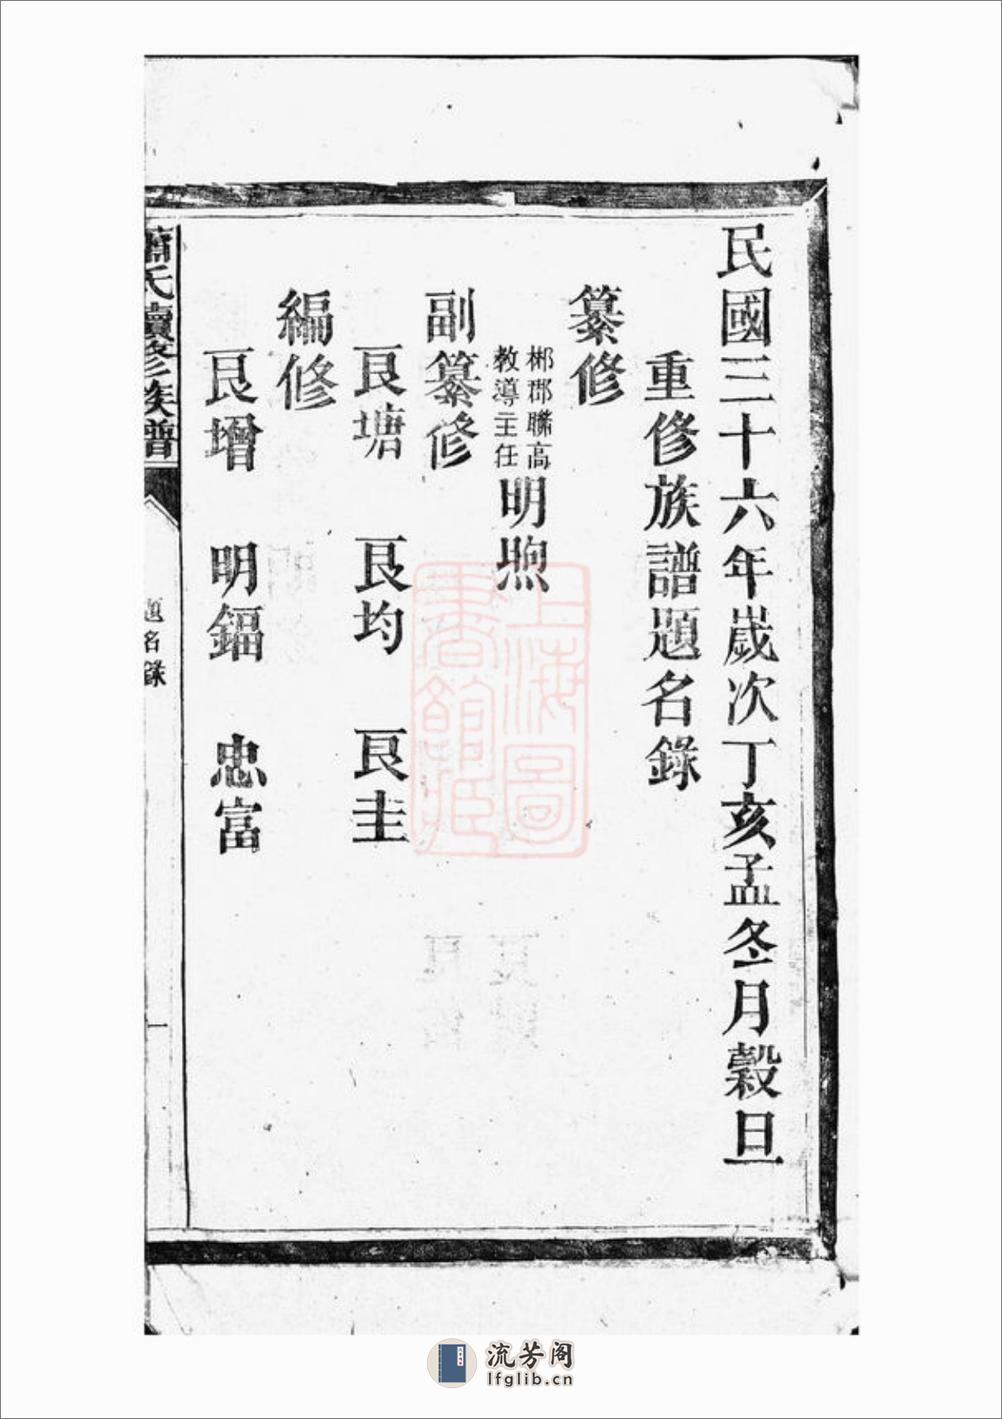 民國三十六年歲次丁亥孟冬月穀旦
重修族譜題名錄
纂修
郴郡聯高
教導主任
明煦
副纂修
艮塘 艮均 艮圭
編修
艮增 明鎘 忠富
蕭氏續修族譜
題名錄
一
上海圖書館藏
流芳阁
lfglib.cn